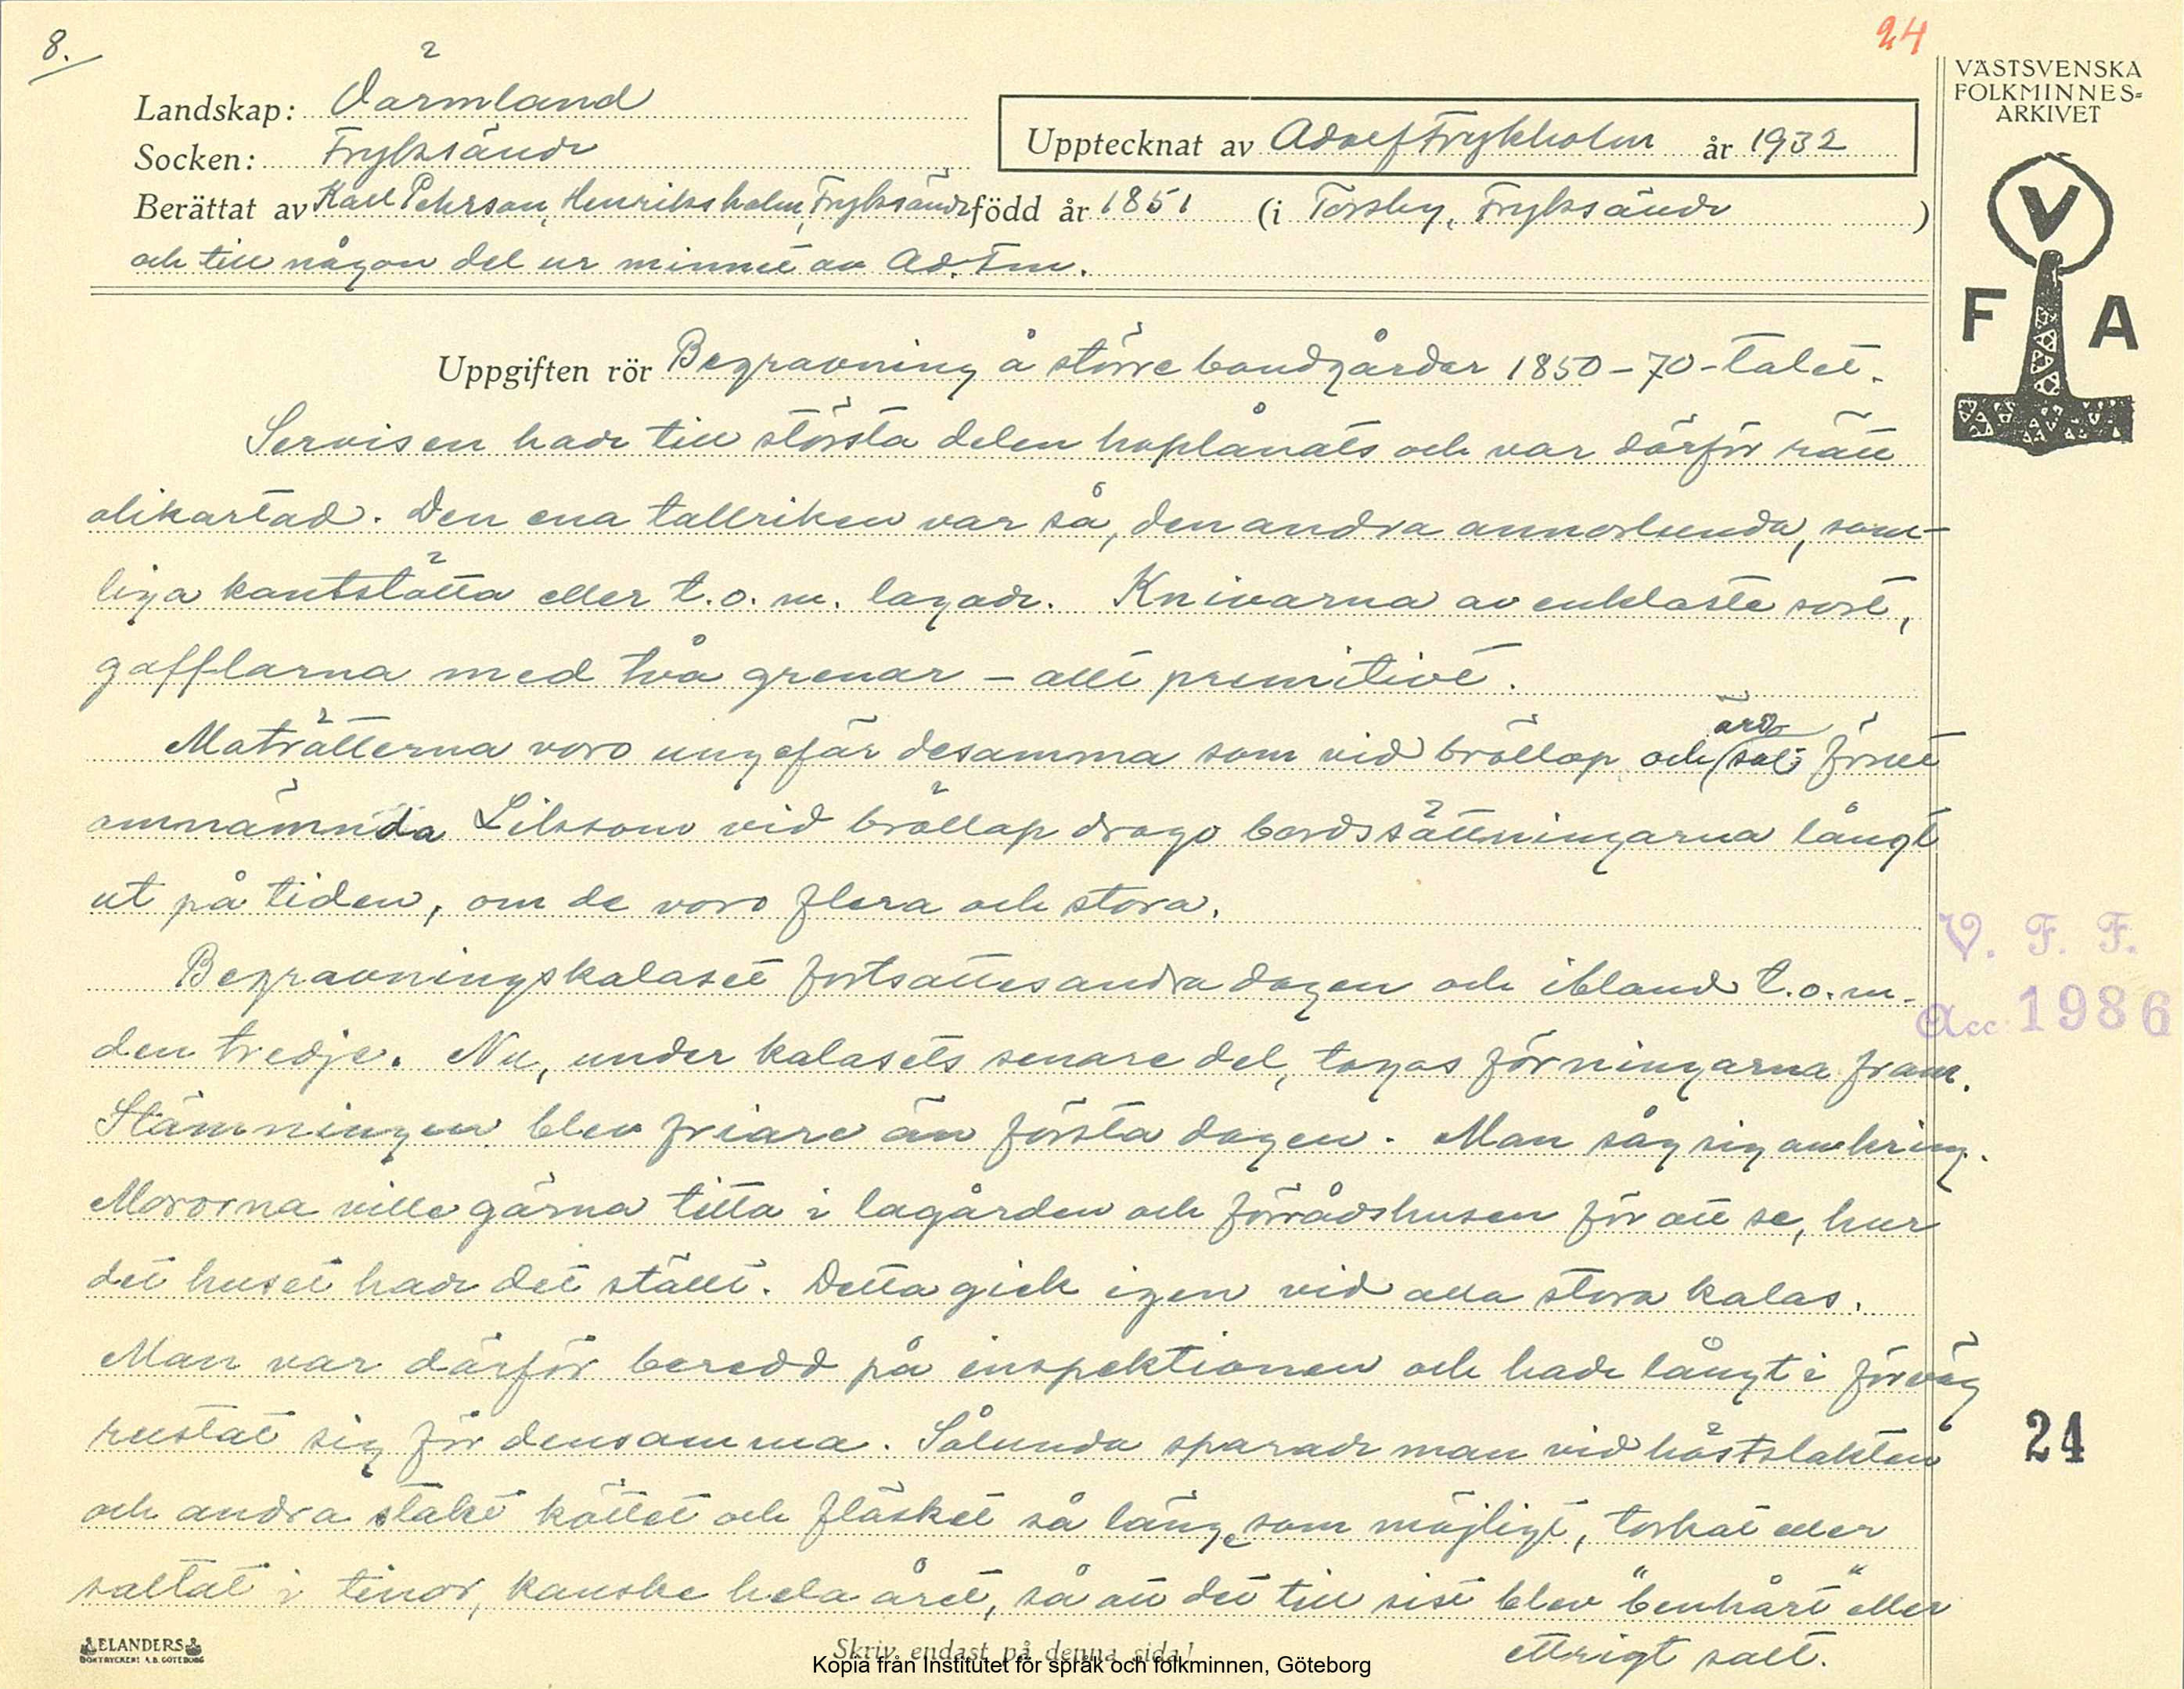 8.
24
VÄSTSVENSKA
FOLKMINNES=
ARKIVET
Landskap: Värmland
Upptecknat av Adolf Frykholm år 1932
Socken: Fryksände
Berättat av Karl Peterson, Henriksholm, Fryksände född år 1851 (i Torsby, Fryksände )
och till någon del ur minnet av Ad. Fm.
V
F A
Uppgiften rör Begravning å större bondgårdar 1850-70-talet.
Servisen hade till största delen hoplånats och var därför rätt
olikartad. Den ena tallriken var så, den andra annorlunda, som-
liga kantstötta eller t.o.m. lagade. Knivarna av enklaste sort,
gafflarna med två grenar - allt primitivt.
Maträtterna voro ungefär desamma som vid bröllop och förut
omnämnda. Liksom vid bröllop drogo bordssättningarna långt
ut på tiden, om de voro flera och stora.
Begravningskalaset fortsattes andra dagen och ibland t.o.m.
V. F. F.
Acc 1986
den tredje. Nu, under kalasets senare del, togos förningarna fram.
Stämningen blev friare än första dagen. Man såg sig omkring.
Mororna ville gärna titta i lagården och förrådshusen för att se, hur
det huset hade det ställt. Detta gick igen vid alla stora kalas.
Man var därför beredd på inspektionen och hade långt i förväg
rustat sig för densamma. Sålunda sparade man vid höstslakten
24
och andra slakt köttet och fläsket så länge som möjligt, torkat eller
saltat i tinor, kanske hela året, så att det till sist blev "benhårt" eller
ettrigt salt.
ELANDERS
BOKTRYCKERI A.B. GÖTEBORG
Skriv endast på denna sida!
Kopia från Institutet för språk och folkminnen, Göteborg